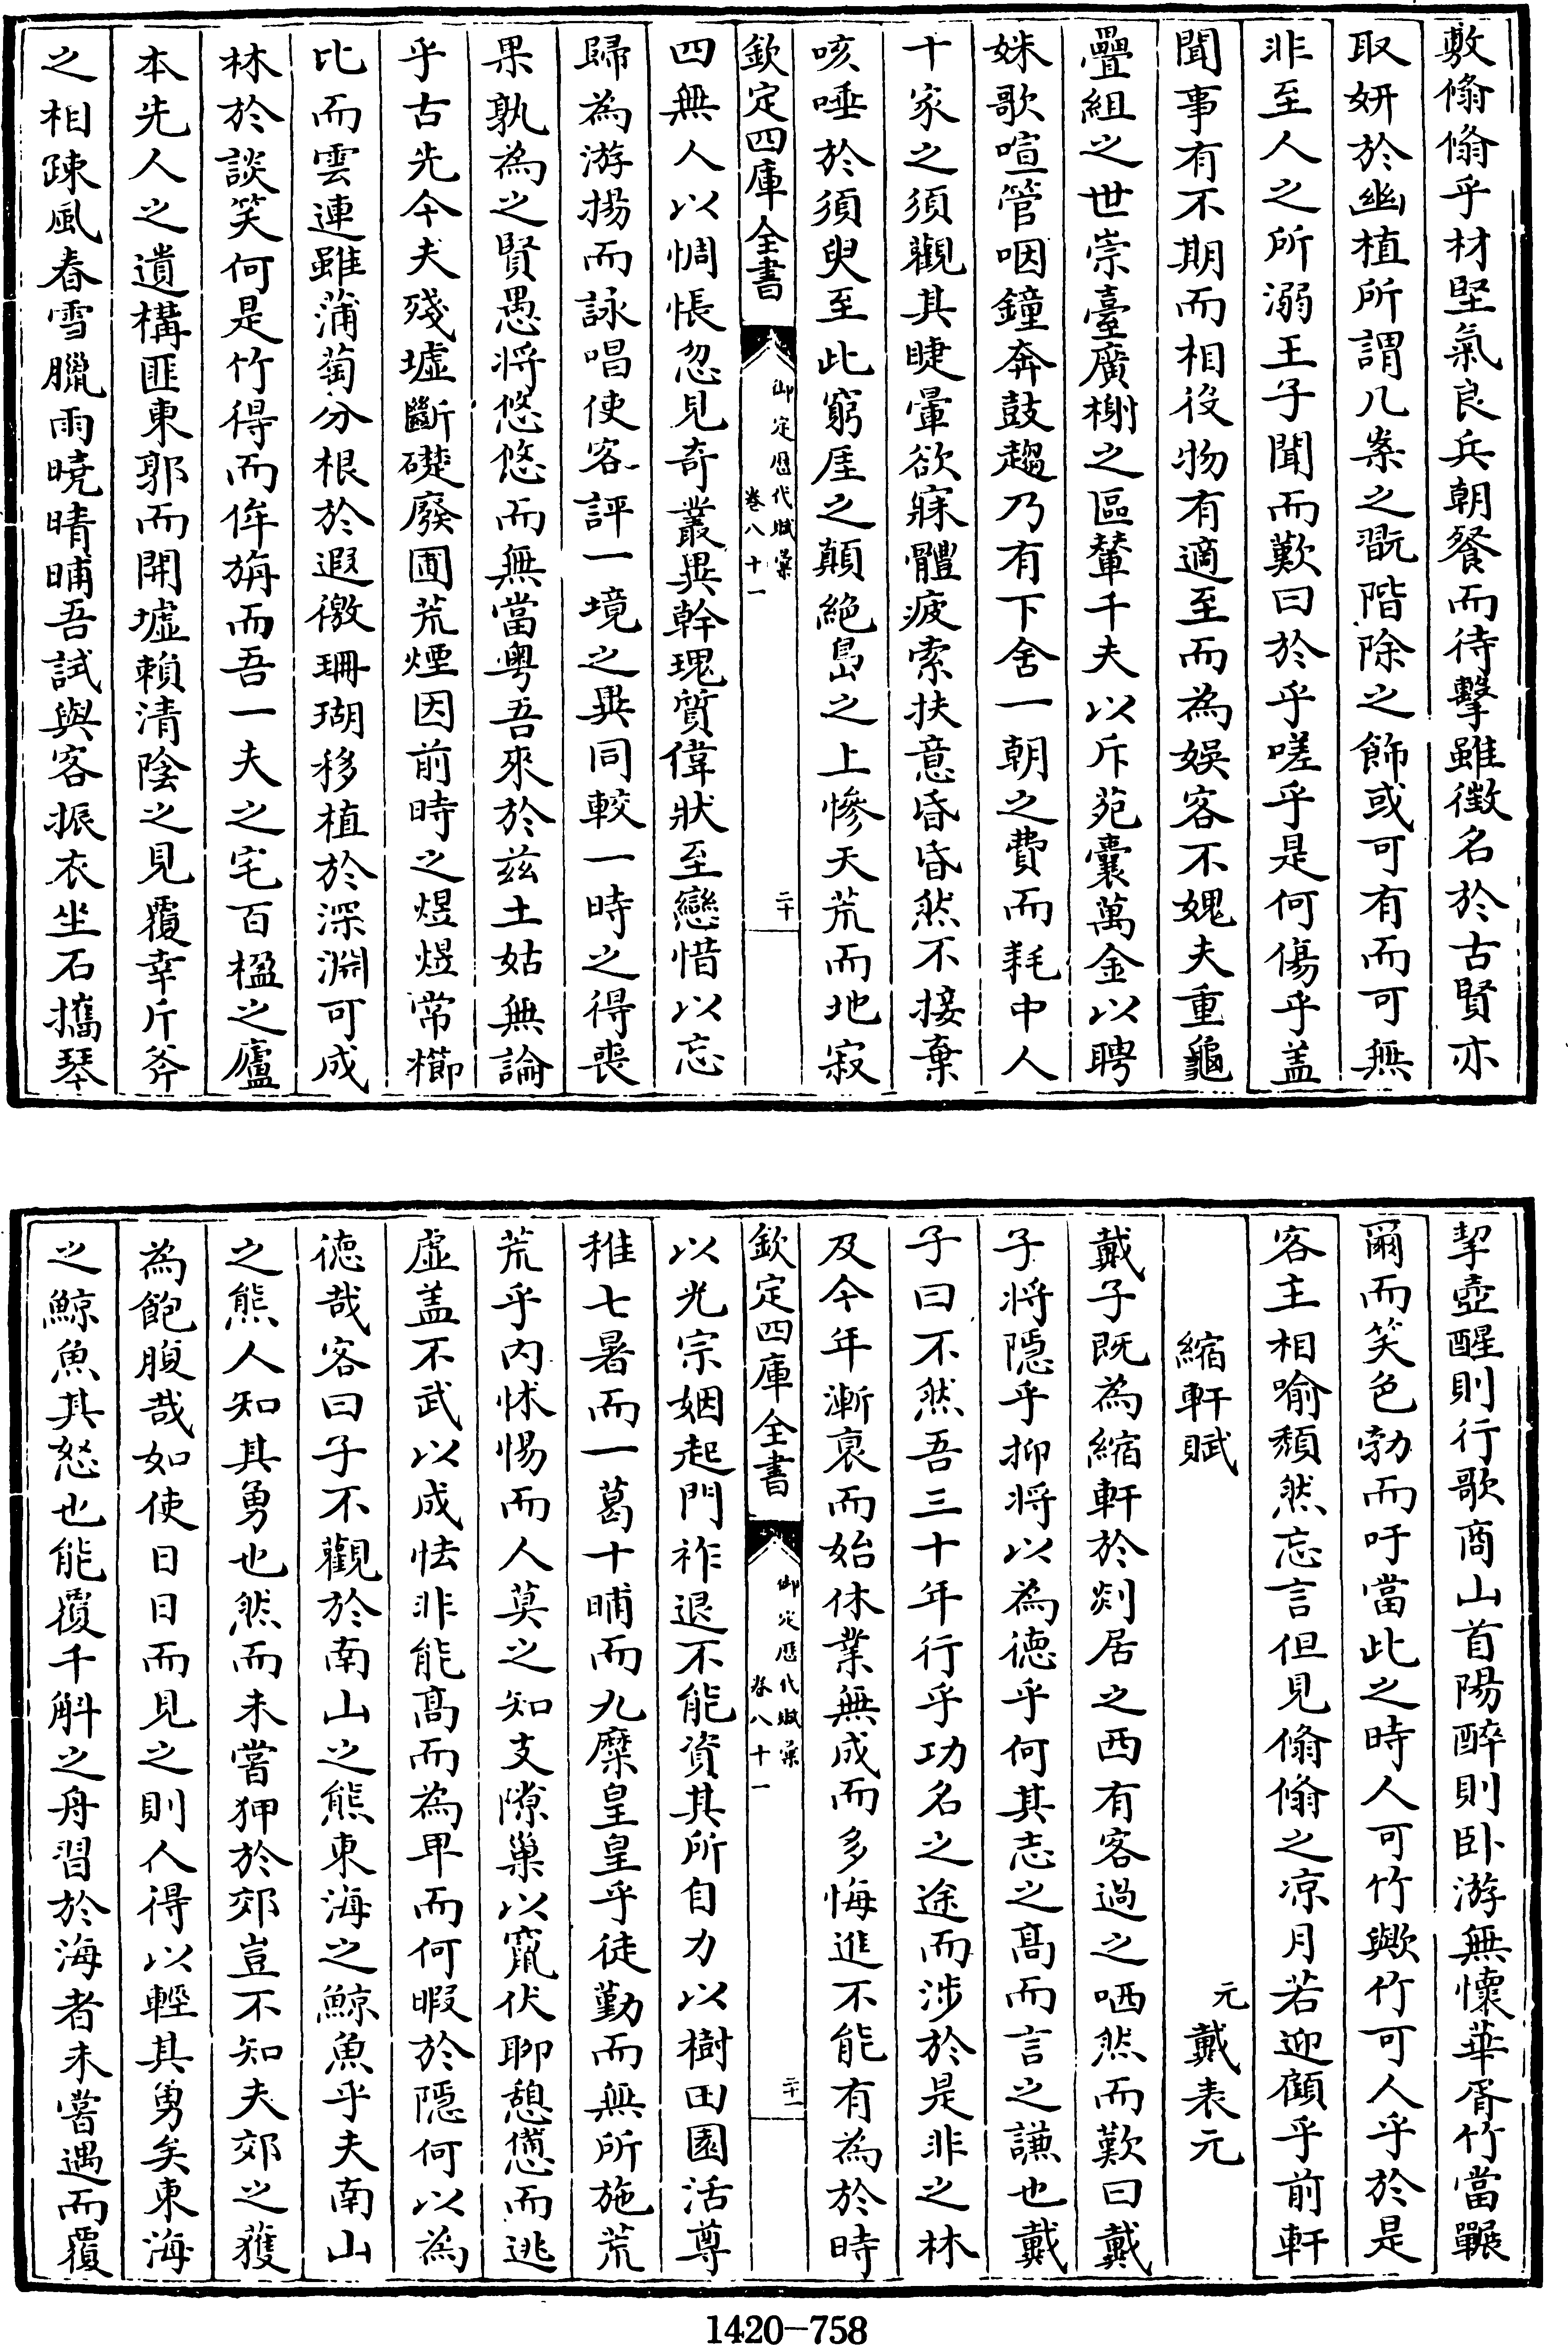 敷翛翛乎材堅氣良兵朝餐而待擊雖徴名於古賢亦
取妍於幽植所謂几案之翫階除之飾或可有而可無
非至人之所溺王子聞而歎曰於乎嗟乎是何傷乎盖
聞事有不期而相役物有適至而為娱客不媿夫重龜
疊組之世崇臺廣榭之區輦千夫以斥苑囊萬金以聘
姝歌喧管咽鐘奔鼓趨乃有下舍一朝之費而耗中人
十家之須觀其睫暈欲寐體疲索扶意昏昏然不接棄
咳唾於須臾至此窮厓之顛絶島之上慘天荒而地寂
欽定四庫全書
御定歴代賦彙
卷八十一
二十
四無人以惆悵忽見奇叢異幹瑰質偉狀至戀惜以忘
歸為游揚而詠唱使客評一境之異同較一時之得喪
果孰為之賢愚將悠悠而無當粤吾來於兹土姑無論
乎古先今夫殘墟斷礎廢圃荒煙因前時之煜煜常櫛
比而雲連雖蒲萄分根於遐徼珊瑚移植於深淵可成
林於談笑何是竹得而侔旃而吾一夫之宅百楹之廬
本先人之遺構匪東郭而開墟賴清陰之見覆幸斤斧
之相踈風春雪臘雨曉晴晡吾試與客振衣坐石攜琴
挈壺醒則行歌商山首陽醉則卧游無懷華胥竹當冁
爾而笑色勃而吁當此之時人可竹歟竹可人乎於是
客主相喻頽然忘言但見翛翛之凉月若迎顧乎前軒
縮軒賦
元
戴表元
戴子既為縮軒於剡居之西有客過之哂然而歎曰戴
子將隱乎抑將以為德乎何其志之髙而言之謙也戴
子曰不然吾三十年行乎功名之途而涉於是非之林
及今年漸衰而始休業無成而多悔進不能有為於時
欽定四庫全書
御定歴代賦彙
卷八十一
二十一
以光宗姻起門祚退不能資其所自力以樹田園活尊
稚七暑而一葛十晡而九糜皇皇乎徒勤而無所施荒
荒乎内怵惕而人莫之知支隙巢以竄伏聊憩憊而逃
虚盖不武以成怯非能髙而為卑而何暇於隱何以為
德哉客曰子不觀於南山之熊東海之鯨魚乎夫南山
之熊人知其勇也然而未嘗狎於郊豈不知夫郊之獲
為飽腹哉如使日日而見之則人得以輕其勇矣東海
之鯨魚其怒也能覆千斛之舟習於海者未嘗遇而覆
1420-758